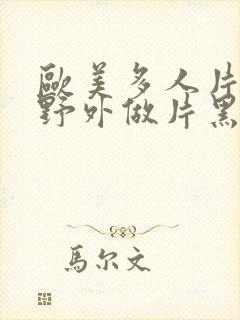 歐美多人片
野外做片黑
馬尔文